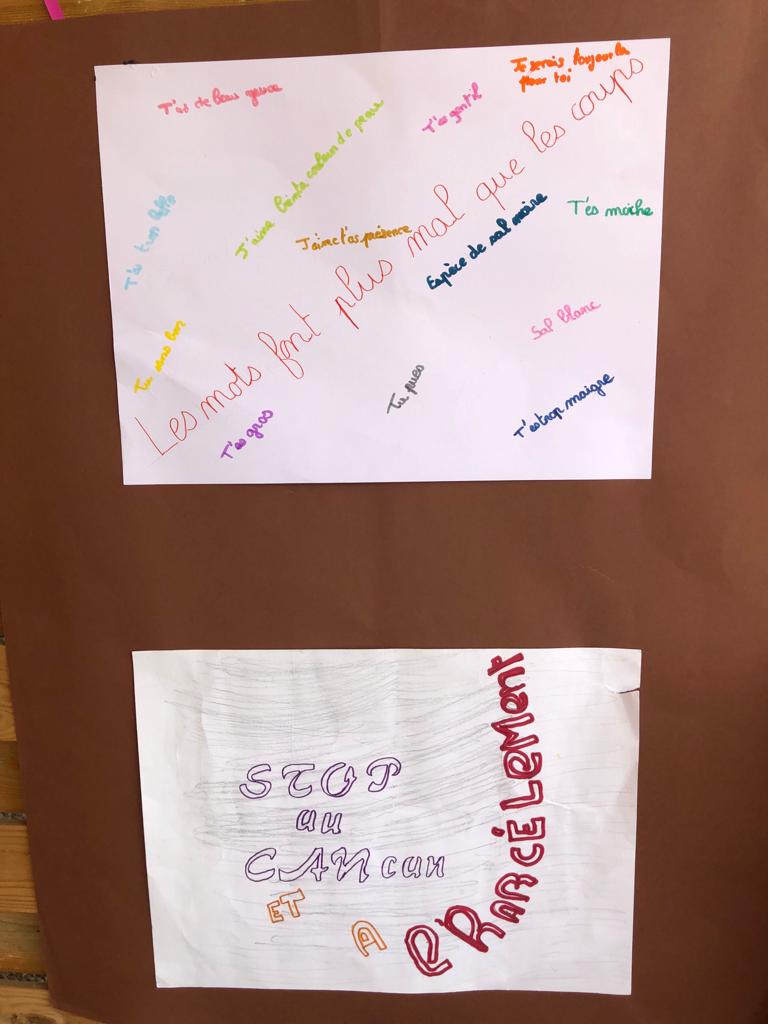 Je serais toujours la
pour toi
T'as de beau
T'es gentil
J'aime couleur de peau
Les mots font plus mal que les coups
T'es moche
J'aime t'as présence
Espèce de sal noire
T'es trop belle
Sal blanc
Tu sens bon
Tu pues
T'es trop maigre
T'es gros
STOP
au
CANcan
ET
A
l'HARCÉLEMENT